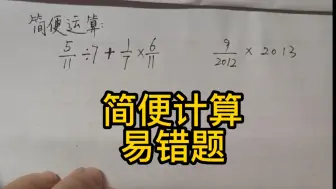 简便运算:
5/11 ÷ 7 + 1/7 × 6/11
9/2012 × 2013
简便计算
易错题